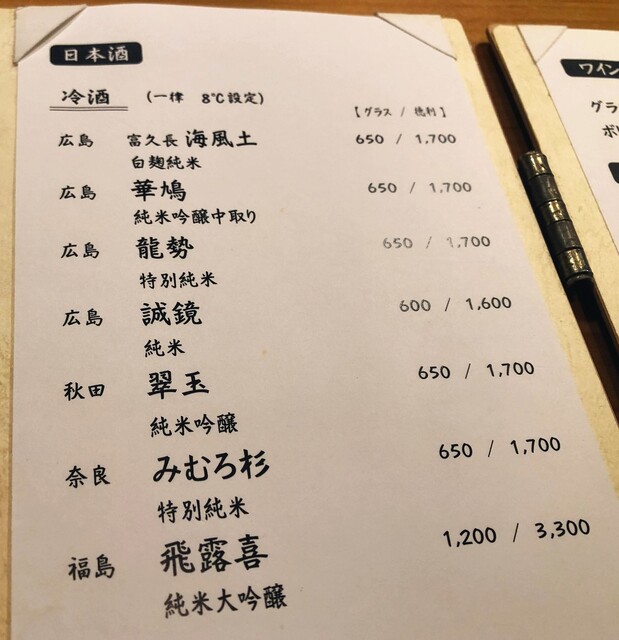 日本酒
冷酒 (一律 8℃設定)
【グラス / 徳利】
広島 富久長 海風土 650 / 1,700
白麹純米
広島 華鳩 650 / 1,700
純米吟醸中取り
広島 龍勢 650 / 1,700
特別純米
広島 誠鏡 600 / 1,600
純米
秋田 翠玉 650 / 1,700
純米吟醸
奈良 みむろ杉 650 / 1,700
特別純米
福島 飛露喜 1,200 / 3,300
純米大吟醸
ワイン
グラ
ボ